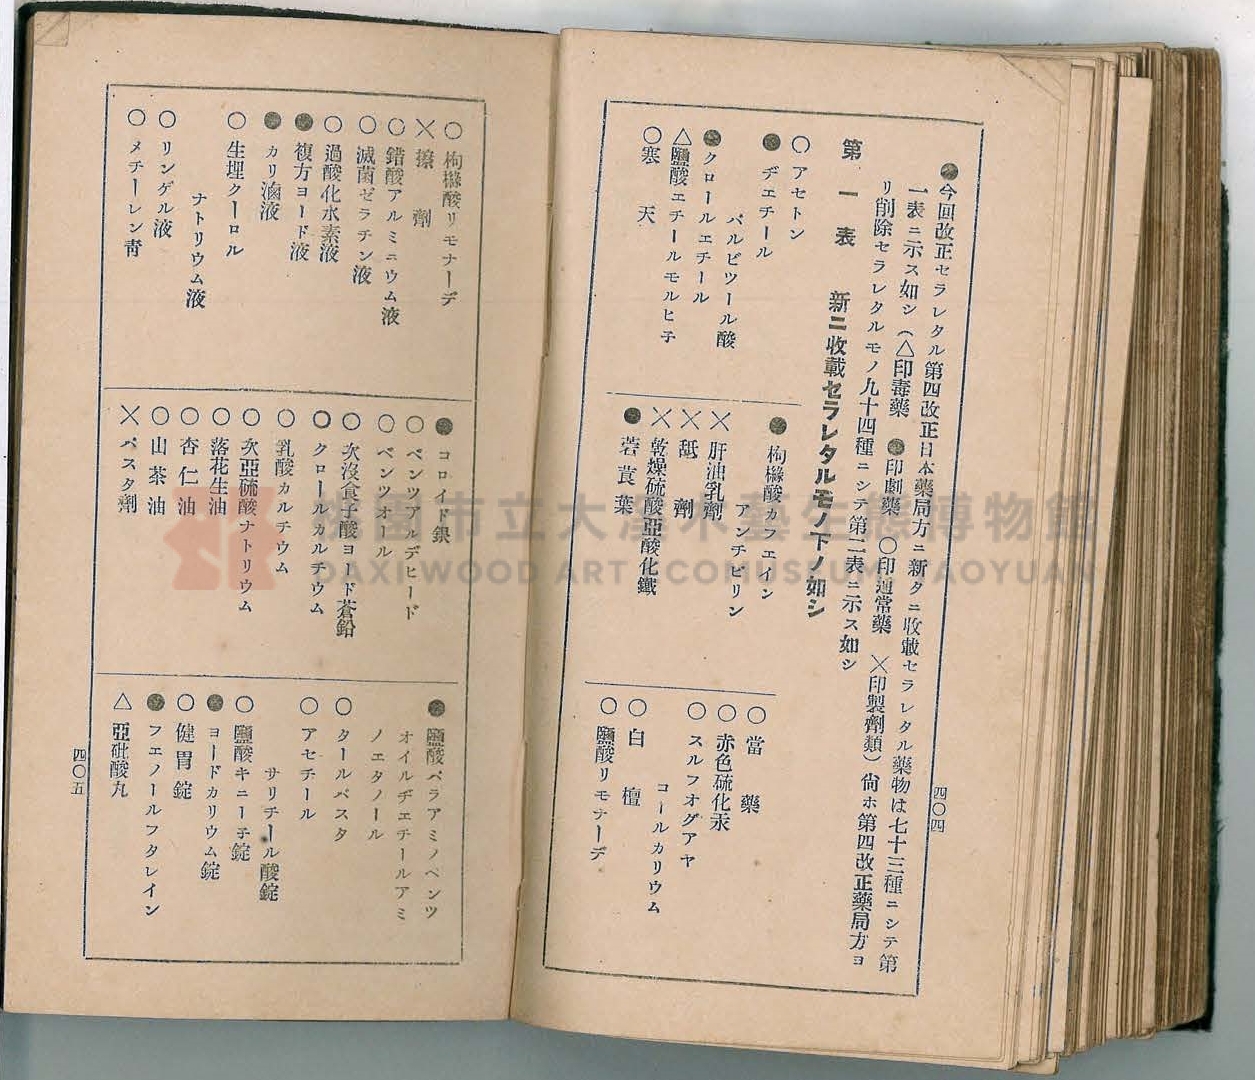 四〇四
●今回改正セラレタル第四改正日本藥局方ニ新タニ收載セラレタル藥物は七十三種ニシテ第
一表ニ示ス如シ(△印毒藥 ●印劇藥 〇印通常藥 ×印製劑類)尙ホ第四改正藥局方ヨ
リ削除セラレタルモノ九十四種ニシテ第二表ニ示ス如シ
第一表 新ニ收載セラレタルモノ下ノ如シ
〇アセトン
●ヂエチール
バルビツール酸
●クロールエチール
△鹽酸エチールモルヒ子
〇寒天
●枸櫞酸カフエイン
アンチピリン
×肝油乳劑
×舐劑
×乾燥硫酸亞酸化鐵
●莨葉
〇當藥
〇赤色硫化汞
〇スルフオグアヤ
コールカリウム
〇白檀
〇鹽酸リモナーデ
〇枸櫞酸リモナーデ
×擦劑
〇錯酸アルミニウム液
〇滅菌ゼラチン液
〇過酸化水素液
●複方ヨード液
●カリ滷液
〇生埋クーロル
ナトリウム液
〇リンゲル液
〇メチーレン靑
●コロイド銀
〇ベンツアルデヒード
〇ベンツオール
〇次沒食子酸ヨード蒼鉛
〇クロールカルチウム
〇乳酸カルチウム
〇次亞硫酸ナトリウム
〇落花生油
〇杏仁油
〇山茶油
×パスタ劑
●鹽酸パラアミノベンツ
オイルヂエチールアミ
ノエタノール
〇タールパスタ
〇アセチール
サリチール酸錠
〇鹽酸キニー子錠
●ヨードカリウム錠
〇健胃錠
●フエノールフタレイン
△亞砒酸丸
四〇五
桃園市立大溪木藝生態博物館
DAXI WOOD ART ECOMUSEUM TAOYUAN